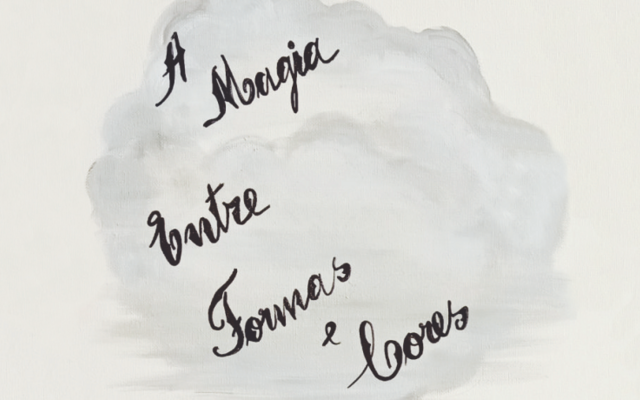 A Magia
Entre
Formas
e Cores